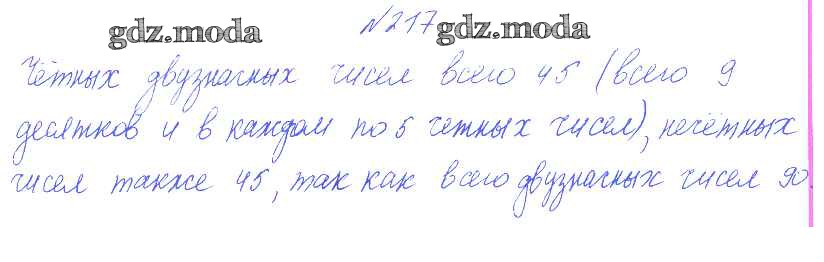 gdz.moda №217 gdz.moda
Чётных двузначных чисел всего 45 (всего 9
десятков и в каждом по 5 четных чисел), нечётных
чисел также 45, так как всего двузначных чисел 90.